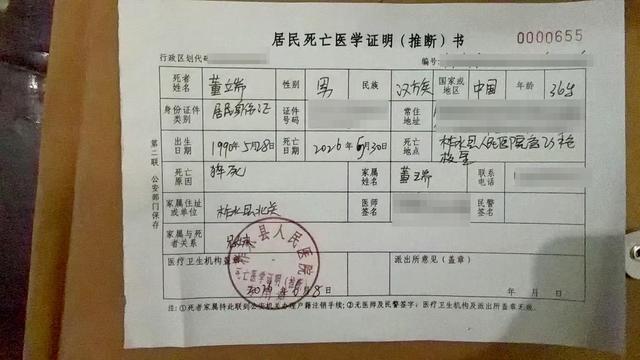 居民死亡医学证明（推断）书
0000655
行政区划代码 编号:
死者姓名 董立端 性别 男 民族 汉族 国家或地区 中国 年龄 36岁
身份证件类别 居民身份证 证件号码 常住地址
出生日期 1990年5月28日 死亡日期 2026年 月30日 死亡地点 柞水县人民医院
死亡原因 猝死 家属姓名 联系电话
家属住址或单位 柞水县北关 医师签名 民警签名
家属与死者关系
医疗卫生机构盖章 派出所意见（盖章）
柞水县人民医院
死亡医学证明（推断）
年 月8日 年 月 日
第二联 公安部门保存
注:①死者家属持此联到公安机关办理户籍注销手续;②无医师及民警签字,医疗卫生机构及派出所盖章无效。